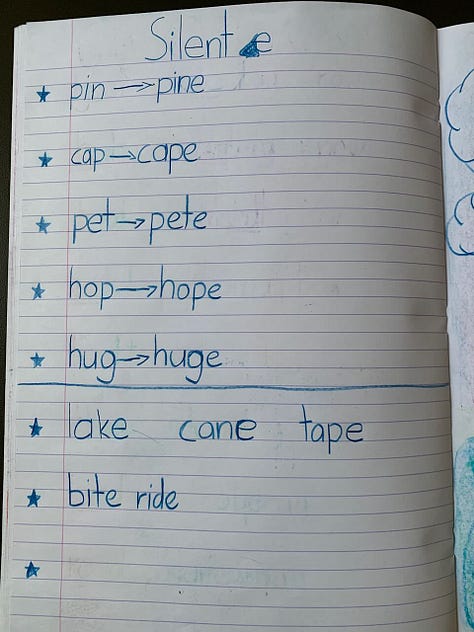 Silent e
★ pin → pine
★ cap → cape
★ pet → pete
★ hop → hope
★ hug → huge
★ lake cane tape
★ bite ride
★